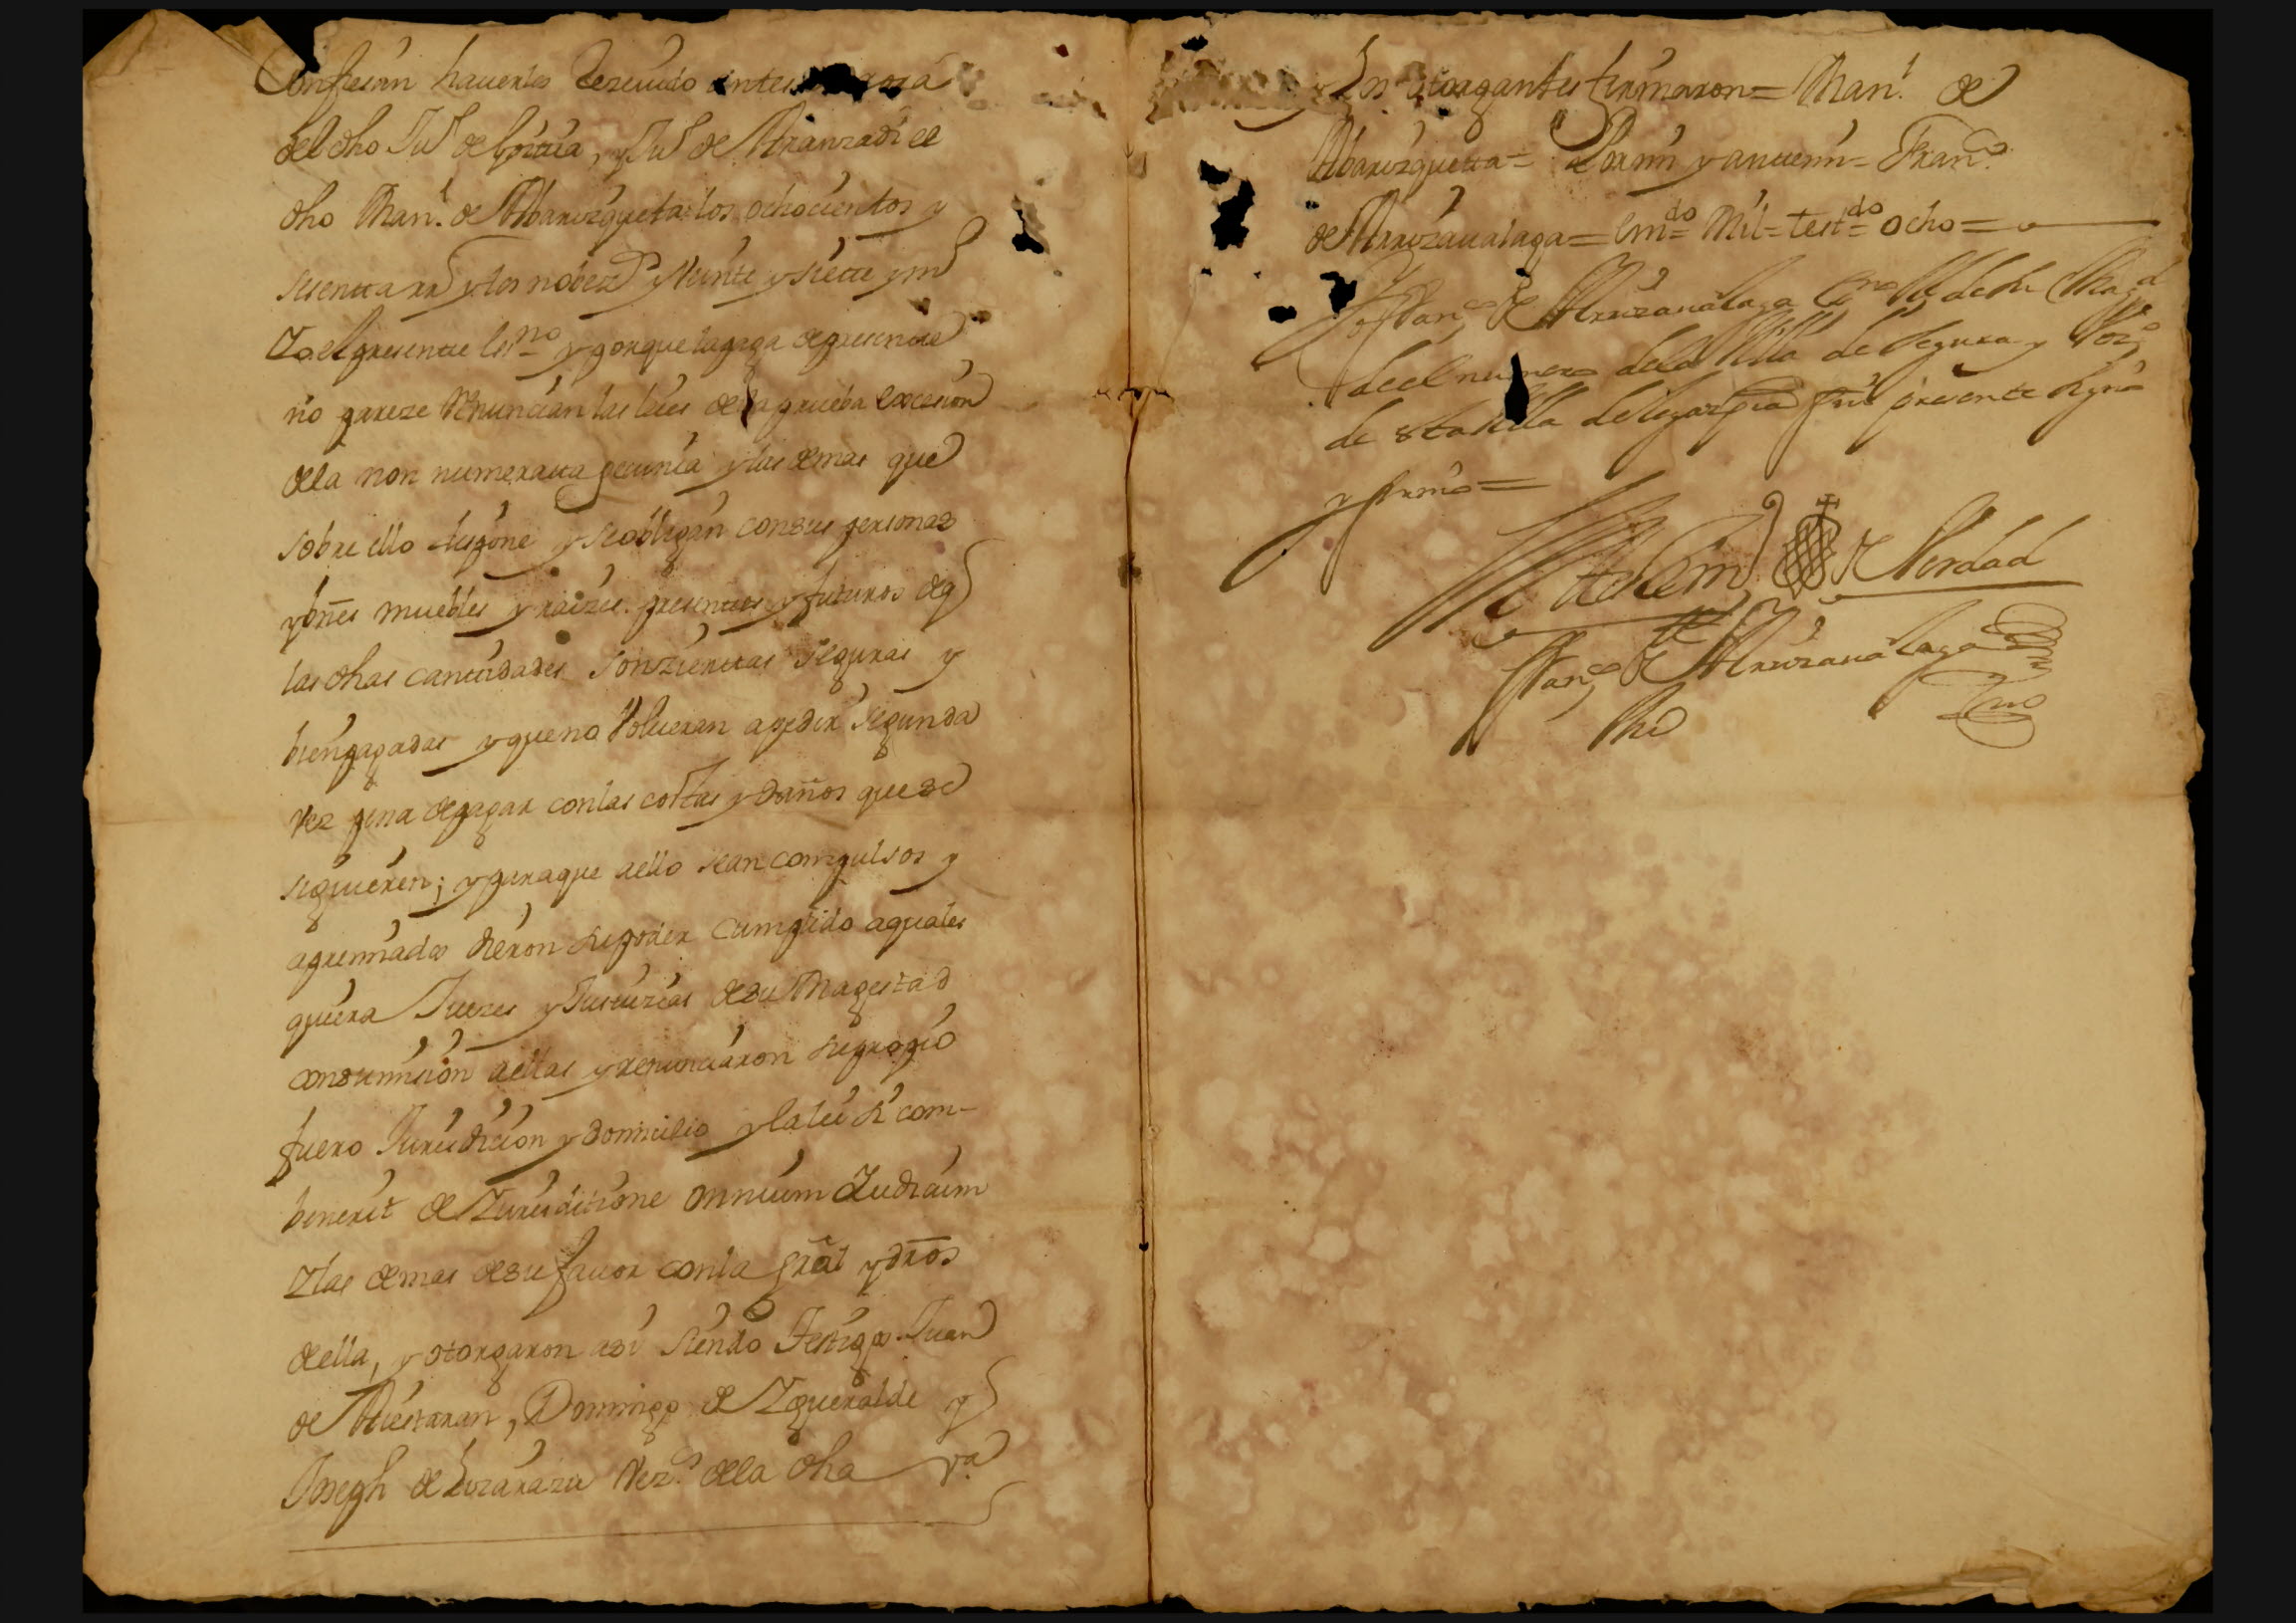 Confiesan hauerlos Rezeuido antes
del dho Ju.º de y Ju.º de Aranzadi el
dho Man.l de Abarizqueta los ochocientos y
sesenta rr.s y los nobez.s y Veinte y siete y m.o
Yo el presente es.no y porque la paga de presente
no pareze Renuncian las leies de la prueba excecion
de la non numerata pecunia y las demas que
sobre ello dispone y se obligan con sus personas
y bñes muebles y raizes presentes y futuros de q
las dhas cantidades son ziertas seguras y
bien pagadas y que no Volueran a pedir segunda
Vez pena de pagar con las costas y daños que se
siguieren; y para que a ello sean compulsos y
apremiados dieron su poder cumplido a quales
quiera Juezes y Justizias de su Magestad
con sumision a ellas y renunciaron su propio
fuero Jurisdicion y domicilio y la lei si com-
benerit de Zurisditione omnium Zudicum
Y las demas de su fauor con la grãl y dr̃os
de ella, y otorgaron asi siendo Testigos Juan
de Aristaran, Domingo de Ygueralde y
Joseph de Vez.s de la dha v.a
Los otorgantes firmaron = Man.l de
Abarizqueta = Fran.co
de Arrizaualaga = em.do = Mil = test.do = ocho =
Yo Fran.co de Arrizaualaga es.no R.l de su Mag.d
de el numero de la Villa de Segura y Vez.o
de sta Villa de Legazpia fui presente signé
y firmé =
En testim.o de Verdad
Fran.co de Arrizaualaga